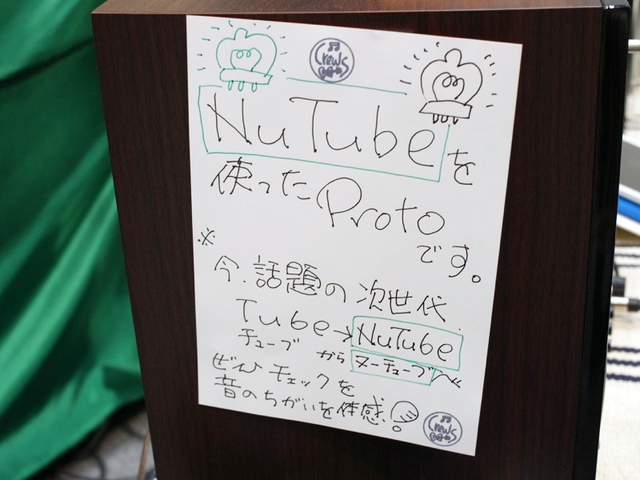 Crews
NuTubeを
使ったProto
です。
※
今、話題の次世代
Tube→NuTube
チューブ から ヌーチューブへ
ぜひチェックを
音のちがいを体感!
Crews